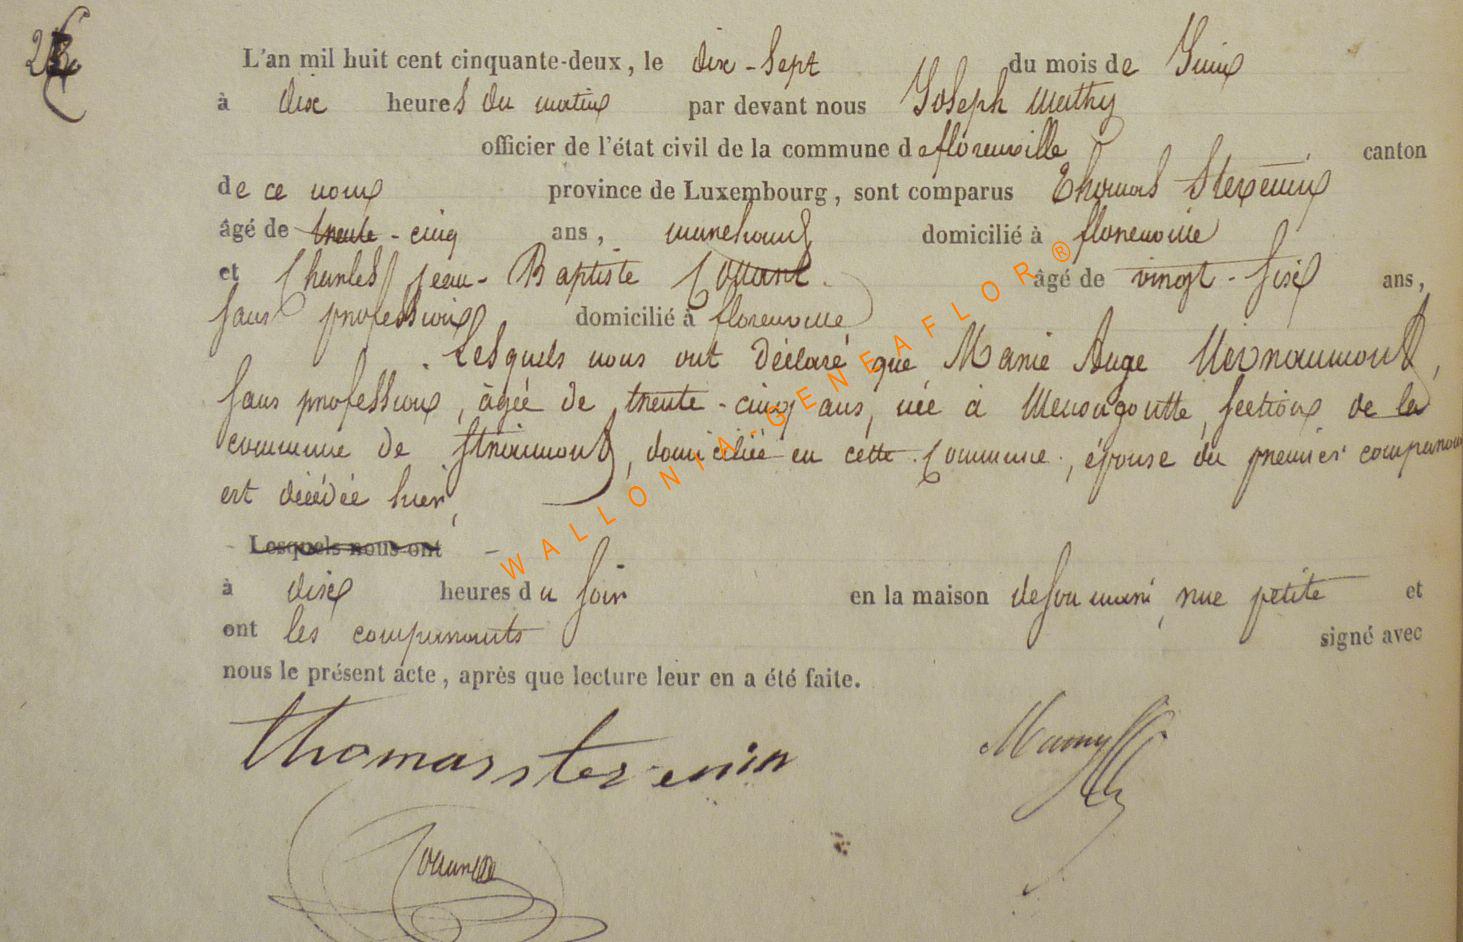 L'an mil huit cent cinquante-deux, le dix-sept du mois de Juin
à dix heures du matin par devant nous Joseph Mathy
officier de l'état civil de la commune de florenville canton
de ce nom province de Luxembourg, sont comparus Thomas
âgé de trente-cinq ans, marchand domicilié à florenville
et Charles Jean-Baptiste âgé de vingt-six ans,
sans profession domicilié à florenville
Lesquels nous ont déclaré que Marie Ange
sans profession, âgée de trente-cinq ans, née à Menugoutte, section de la
commune de Straimont, domiciliée en cette Commune, épouse du premier comparant
est décédée hier,
Lesquels nous ont
à dix heures du soir en la maison de son mari, rue petite et
ont les comparants signé avec
nous le présent acte, après que lecture leur en a été faite.
thomas
WALLONIA-GENEAFLOR®